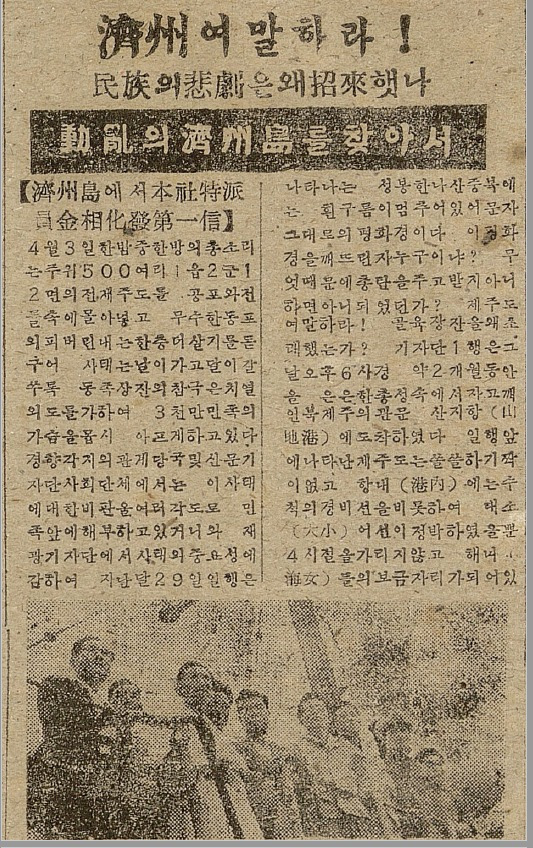 濟州여 말하라!
民族의悲劇은왜招來햇나
動亂의濟州島를찾아서
【濟州島에서本社特派
員金相化發第一信】
4월3일한밤중한방의총소리
는주위500여리1읍2군1
2면의전재주도를 공포와전
률속에몰아넣고 무수한동포
의피버린내는한층더살기문돋
구어 사태는날이가고달이갈
쑤록 동족상잔의참국은치열
의도를가하여 3천만민족의
가슴을몹시 아프게하고있다
경향각지의관계당국및신문기
자단사회단체에서는 이사태
에대한비판을여러각도로 민
족앞에해부하고있거니와 재
광기자단에서사태의중요성에
감하여 지난달29일일행은
나타나는 성봉한나산중복에
는 흰구름이멈추어있어문자
그대로의평화경이다 이평화
경을깨뜨린자누구이냐? 무
엇때문에총탄을주고받지아니
하면아니되었던가? 제주도
여말하라! 골육장잔을왜초
래했는가? 기자단1행은그
날오후6시경 약2개월동안
을 은은한총성속에서자고깨
인북제주의관문 산지항(山
地港)에도착하였다 일행앞
에나타난제주도는쓸쓸하기짝
이없고 항내(港內)에는수
척의경비선을비롯하여 대소
(大小)어선이정박하였을뿐
4시절을가리지않고 해녀
海女)들의보금자리가되어있